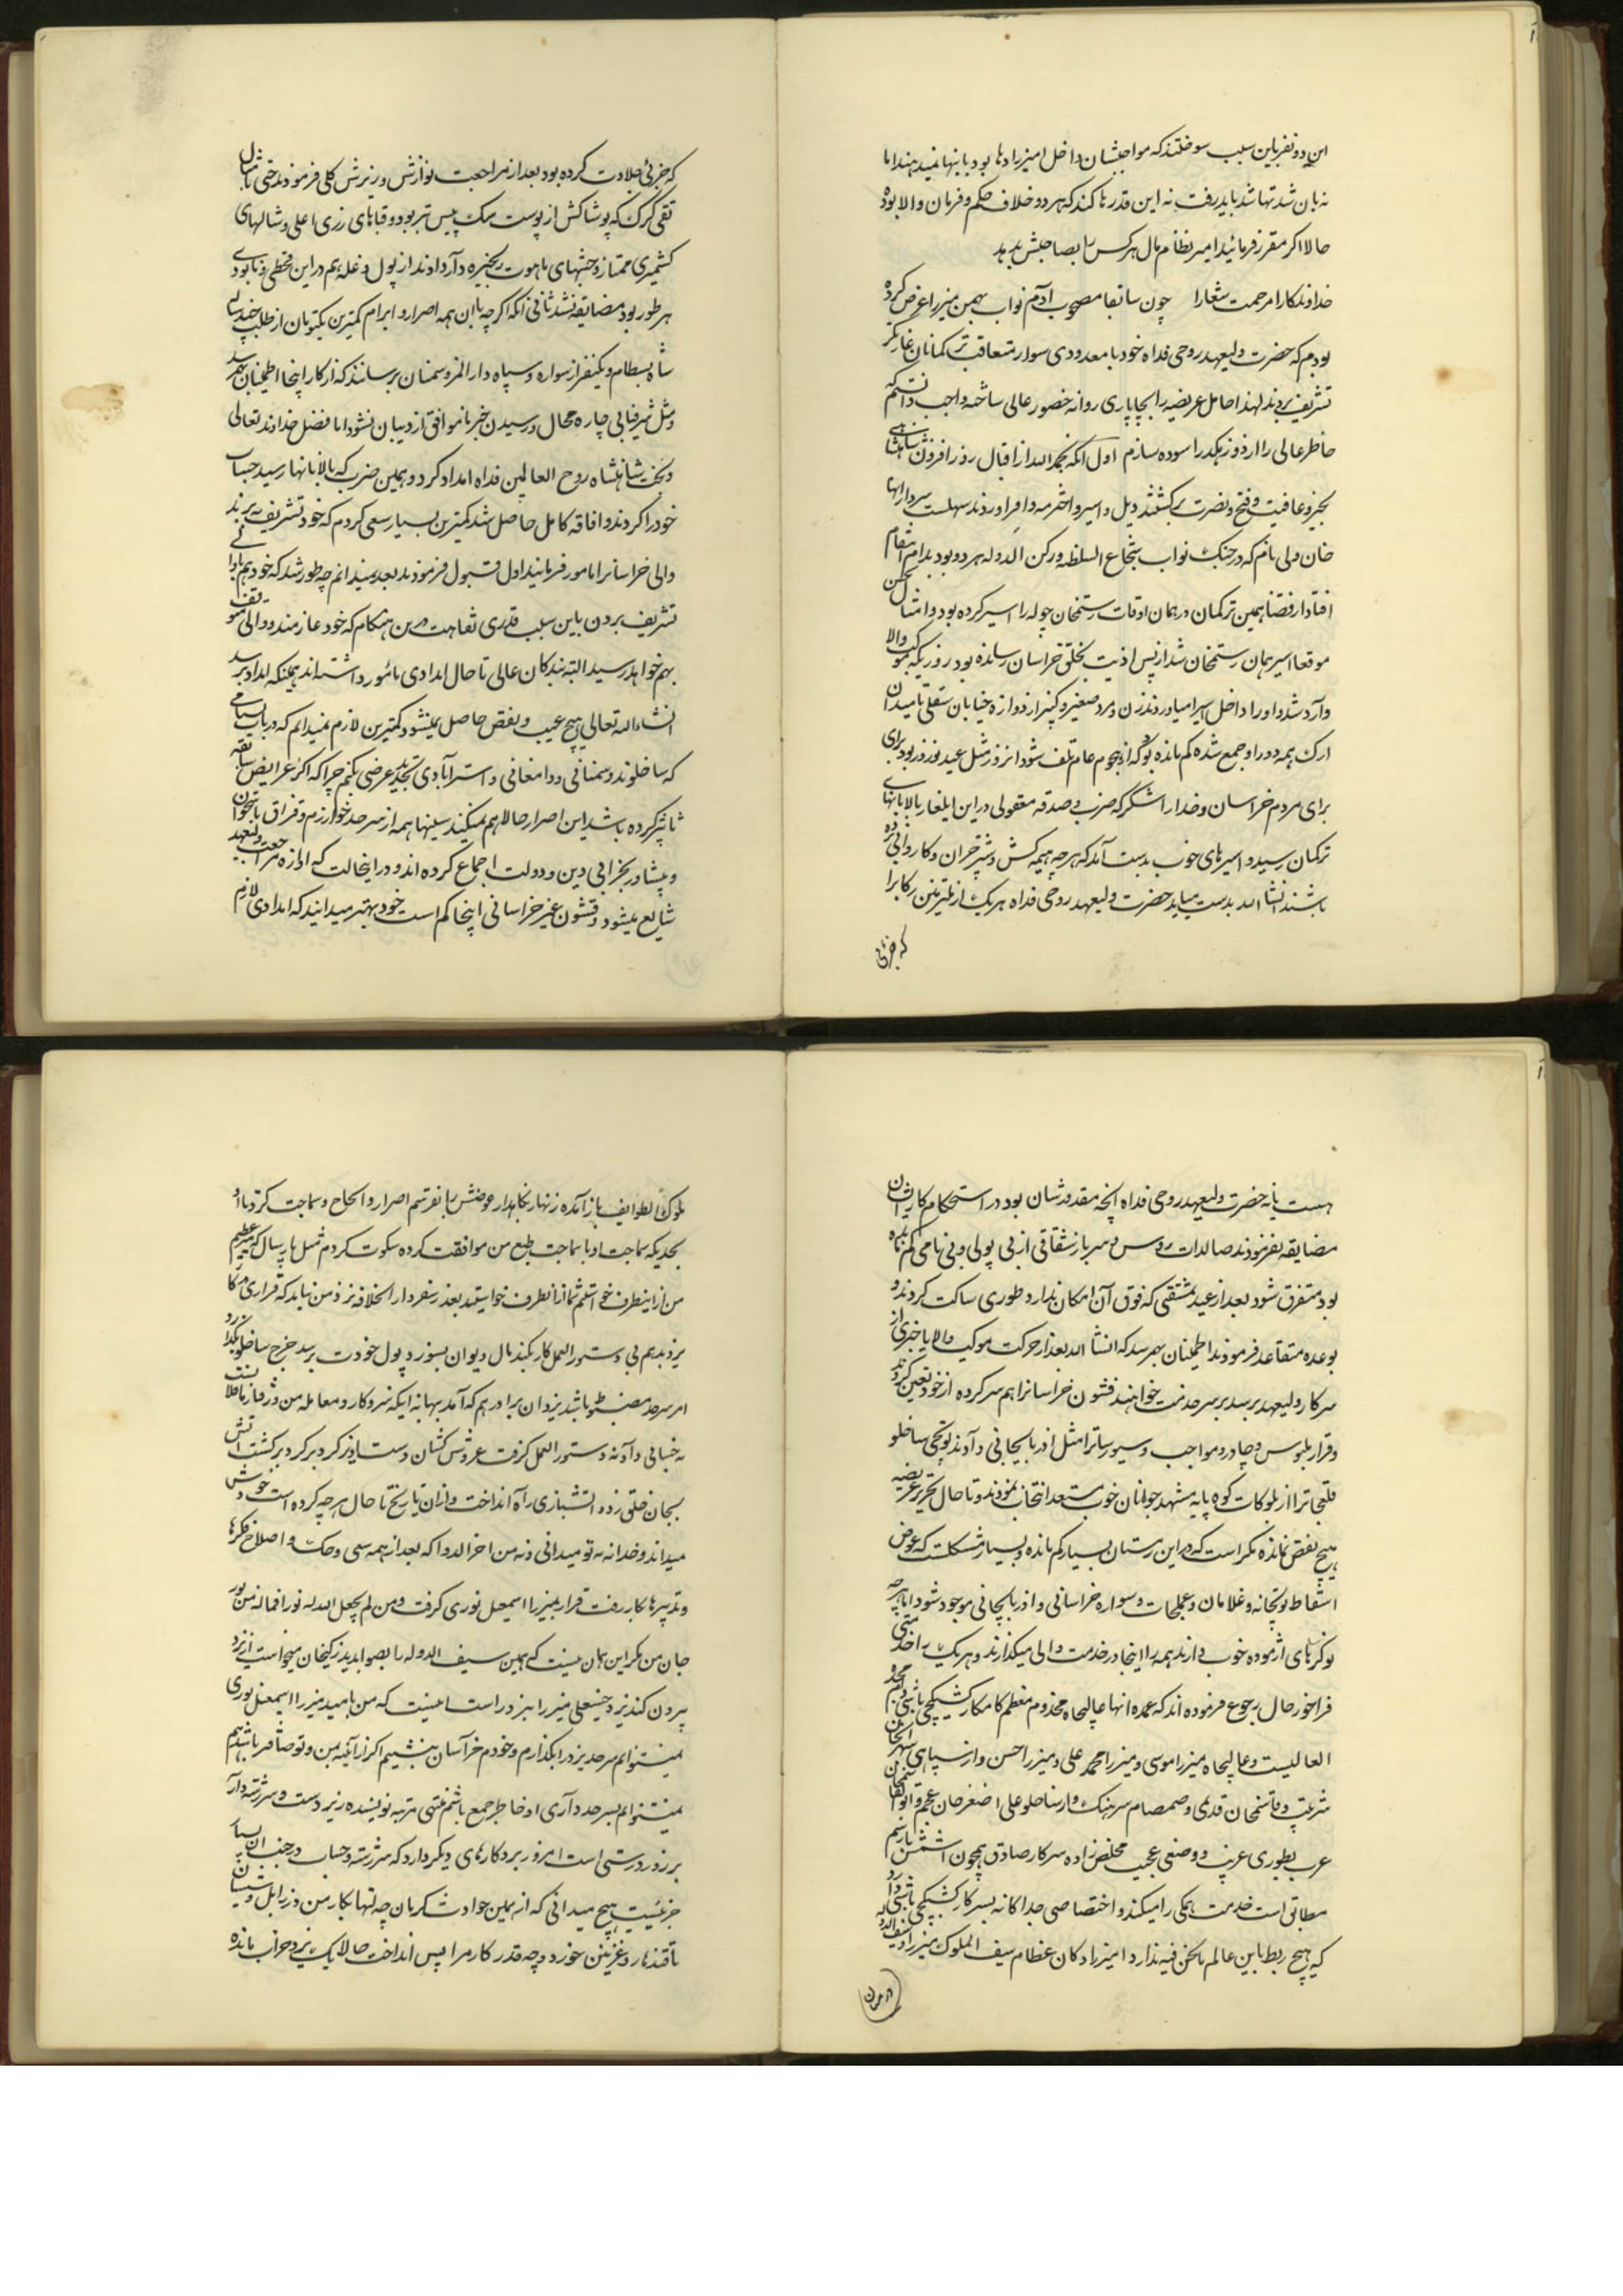 این دو نفر باین سبب سوختند که مواجبشان داخل امیرزادها بود باینها نمیدهند اما
نه بان شد تنها شد باید رفت نه این قدر ها کند که هر دو خلاف حکم و فرمان والا بوده
حالا اگر مقرر فرمائید امیر نظام مال هر کس را بصاحبش بدهد
خداوندکارا مرحمت شعارا چون سابقا مصحوب آدم نواب بهمن میرزا عرض کرده
بودم که حضرت ولیعهد روحی فداه خود با معدودی سوار متعاقب ترکمانان غارتگر
تشریف بردند لهذا حامل عریضه را بچاپاری روانه حضور عالی ساخته واجب دانستم که
خاطر عالی را از دو رهگذر اسوده سازم اول آنکه بحمدالله از اقبال روز افزون شاهنشاهی
بخیر و عافیت و فتح و نصرت برگشتند و اسیر و اخترمه وافر اوردند
خان ولی نام که در جنگ نواب شجاع السلطنه و رکن الدوله هر دو بود بدام انتقام
افتاد از قضا همین ترکمان در همان اوقات رستمخان چوله را اسیر کرده بود
موقعا اسیر همان رستمخان شد از بس اذیت بخلق خراسان رسانده بود روزیکه موکب والا
وارد شد و او را داخل اسرا میاوردند زن و مرد صغیر و کبیر از دروازه خیابان سفلی تا میدان
ارک همه دور او جمع شده کم مانده بود که از هجوم عام تلف شود انروز مثل عید نوروز بود برای
برای مردم خراسان و خدا را شکر که ضرب و صدقه معقولی در این ایلغار بالا بانهای
ترکمان رسید و اسیرهای خوب بدست آمد که هر چه هیمه کش و شتر چران و کاروانی برده
باشند انشاالله بدست میاید حضرت ولیعهد روحی فداه هر یک از ملتزمین رکاب را
که جزئی
که جزئی جلادت کرده بود بعد از مراجعت نوازش و ریزش کلی فرمودند حتی بامثال
تقی گرگ که پوشاکش از پوست سگ پیس تر بود و قباهای زری اعلی و شالهای
کشمیری ممتاز و جبههای ماهوت دادند از پول و غله هم در این قحطی و نابودی
هر طور بود مضایقه نشد ثانی آنکه اگر چه باان همه اصرار و ابرام کمترین یکتومان از طلب
شاه بسطام و یکنفر از سواره و سپاه دارالمرز و سمنان نرساندند که از کار اینجا اطمینان بهم رسد
و مثل شرفیابی چاره محال و رسیدن خبر ناموافق از دیبان نشود اما فضل خداوند تعالی
و بخت شاهنشاه روح العالمین فداه امداد کرد و همین ضرب که بالا بانها رسید حساب
خود را کردند و افاقه کامل حاصل شد کمترین بسیار سعی کردم که خود تشریف نبرند
والی خراسانرا مامور فرمایند اول قبول فرمودند بعد نمیدانم چطور شد که خود
تشریف بردن باین سبب قدری نقاهت در بن هنگام که خود عازمند و والی متوقف
بهم خواهد رسید البته بندگان عالی تا حال امدادی مامور داشته اند همینکه امداد برسد
انشاءالله تعالی هیچ عیب و نقص حاصل نمیشود کمترین لازم نمیدانم که در باب سپاهی
که ساخلوند و سمنانی و دامغانی و استرآبادی تجدید عرضی بکنم چرا که اگر عرایض سابقه
تاثیر کرده باشد این اصرار حالا هم نمیکند همه از سرحد خوارزم
و پیشاور بخرابی دین و دولت اجماع کرده اند و در اینحالت که اوازه مراجعت ولیعهد
شایع میشود و قشون غیر خراسانی اینجا کم است خود بهتر میدانید که امدادی لازم
هست یا نه حضرت ولیعهد روحی فداه انچه مقدورشان بود در استحکام کار ایشان
مضایقه نفرمودند صالدات روس و سرباز شقاقی از بی پولی و بی نامی کم مانده
بود متفرق شود بعد از عید مشقی که فوق آن امکان ندارد طوری ساکت کردند و
بوعده متقاعد فرمودند اطمینان بهم رسد که انشاالله بعد از حرکت موکب والا یا خبری از
سرکار ولیعهد برسد بر سر خدمت خواهند قشون خراسانرا هم سرکرده از خود تعیین کردند
و قرار ملبوس و چادر و مواجب و سیورساترا مثل اذربایجانی دادند توپچی ساخلو
قلعجاترا از بلوکات کوه پایه مشهد جوانان خوب مستعد انتخاب نمودند و تا حال تحریر عریضه
هیچ نقص نمانده مگر است که در این زمستان بسیار کم مانده و بسیار مشکلست که عوض
اسقاط توپخانه و غلامان و عملجات و سواره خراسانی و اذربایجانی موجود شود اما هر چه
نوکرهای ازموده خوب دارند همه را اینجا در خدمت والی میگذارند و هر یک را خدمتی
فراخور حال رجوع فرموده اند که عمده انها عالیجاه مخدوم معظم کامکار کشیکچی باشی
العالیست و عالیجاه میرزا موسی و میرزا محمد علی و میرزا حسن و از سپاهی سهرابخان
سرتیپ و قاسمخان قدیمی و صمصام سرهنگ و از ساخلو علی اصغر خان عجم و ابوالقاسمخان
عرب بطوری غریب و وضعی عجیب مخلص زاده سرکار صادق همچون اسمش با رسم
مطابق است خدمت همکی را میکند و اختصاصی جداکانه بسرکار کشیکچی باشی دارد
که هیچ ربط باین عالم مانحن فیه ندارد امیرزادکان عظام سیف الملوک میرزا و سیف الدوله
در میان
ملوک الطوایف باز آمده زنهار نگاهدار عوضش را بفرستم اصرار و الحاح و سماجت کرد با او
بحدیکه سماجت او با سماجت طبع من موافقت کرده سکوت کردم مثل پارسال
من از اینطرف خواستم شما از انطرف خواستید بعد ز سفر دار الخلافه نزد من نیاید که قراری
یزد بدهم بی دستورالعمل کار بکند مال دیوان بسوزد پول خودت برسد خرج ساخلو
امر سرحد مضبوط باشد یزد ان برادر هم که آمد بهانه اینکه سر و کار و معامله من
نه خیالی داد نه دستورالعمل گرفت عروس کشان دست بر کرد و برگشت آتش
بجان خلق زد و اتشبازی راه انداخت و از ان تاریخ تا حال هر چه کرده است خودش
میداند و خدا نه تو میدانی و نه من اخرالدوا که بعد از همه سعی و حک و اصلاح فکرها
و تدبیرها کار رفت قرار بمیرزا اسمعیل نوری گرفت و من لم یجعل الله له نورا فما له من نور
جان من مگر این همان نیست که همین سیف الدوله را بصوابدید زکیخان میخواست از یزد
بیرون کند یزد را ببرد راست اینست که من بامید میرزا اسمعیل نوری
نمیتوانم سرحد یزد را بگذارم و خودم خراسان بنشینم اگر از آئینه من و تو صافتر باشد هم
نمیتوانم بسرحد داری او خاطر جمع باشم منتهی مرتبه نویسنده زبر دست و سررشته دار
بر زور درستی است امروز یزد کارهای دیگر دارد که سررشته و حساب در جنب ان بسیار
جزئیست هیچ میدانی که از همین حوادث کرمان چه ثمرها بکار من در زابل و سیستان
تا قندهار و غزنین خورد و چه قدر کار مرا پس انداخت حالا یک یزد خراب مانده